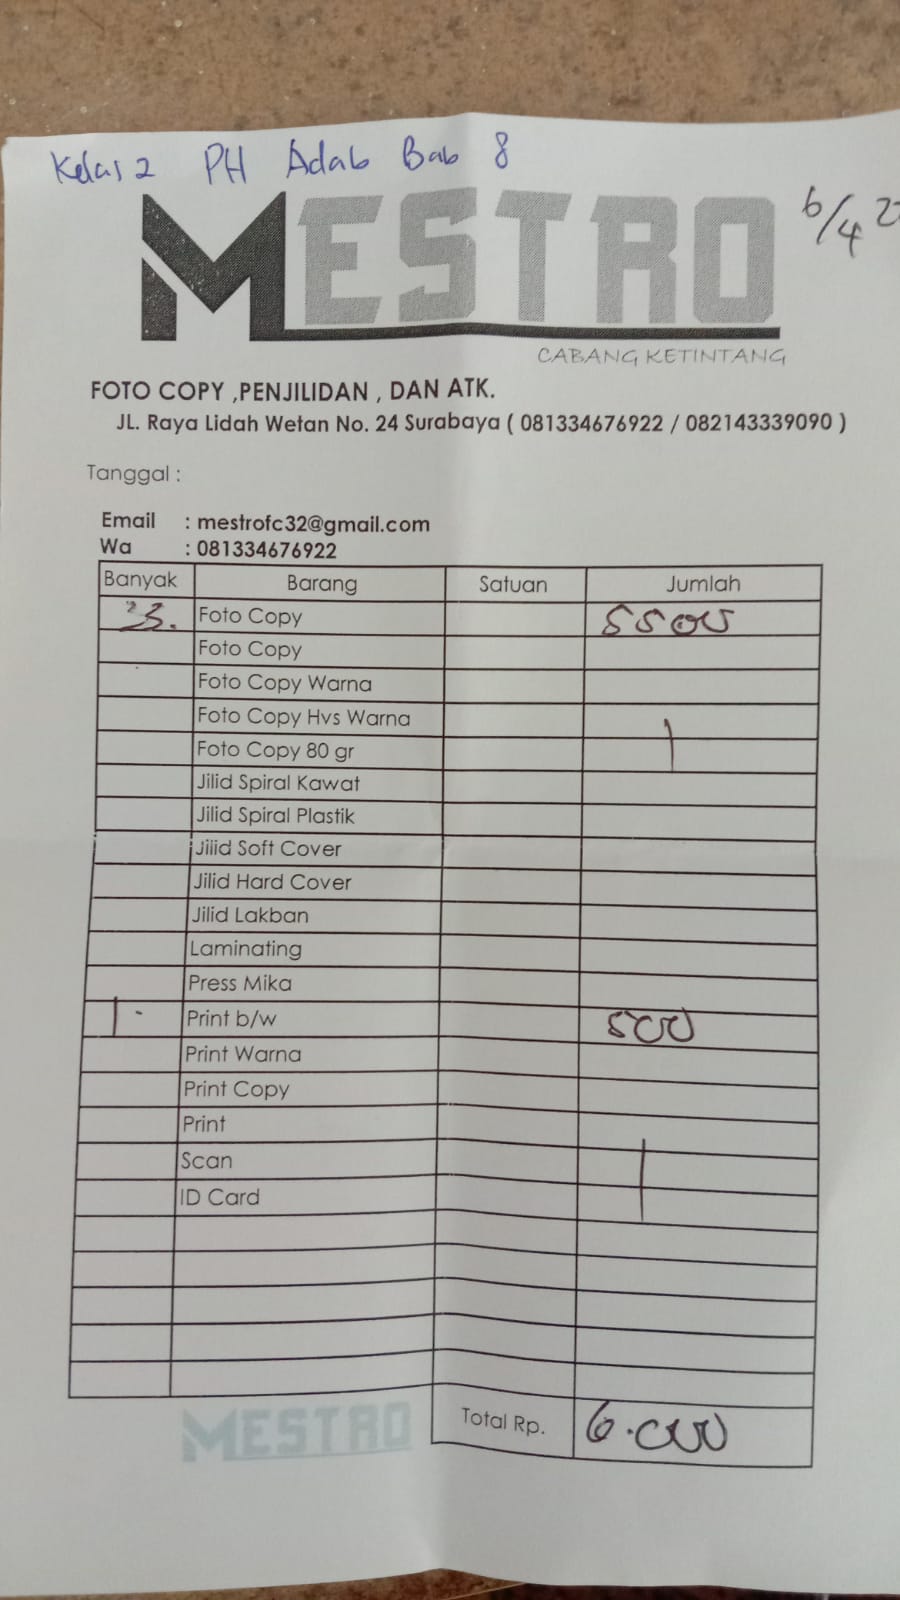 Kelas 2 PH Adab Bab 8
6/4
MESTRO
CABANG KETINTANG
FOTO COPY ,PENJILIDAN , DAN ATK.
JL. Raya Lidah Wetan No. 24 Surabaya ( 081334676922 / 082143339090 )
Tanggal :
Email : mestrofc32@gmail.com
Wa : 081334676922
Banyak Barang Satuan Jumlah
Foto Copy 5500
Foto Copy
Foto Copy Warna
Foto Copy Hvs Warna
Foto Copy 80 gr
Jilid Spiral Kawat
Jilid Spiral Plastik
Jilid Soft Cover
Jilid Hard Cover
Jilid Lakban
Laminating
Press Mika
1. Print b/w 500
Print Warna
Print Copy
Print
Scan
ID Card
Total Rp. 6.000
MESTRO